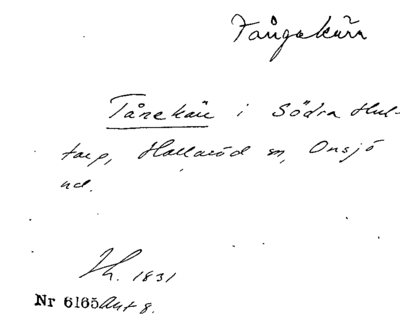 Tångakärr
Tårekärr i Södra Hul-
tarp, Hallaröd sn, Onsjö
hd.
Lh. 1831
Nr 6165 Akt 8.